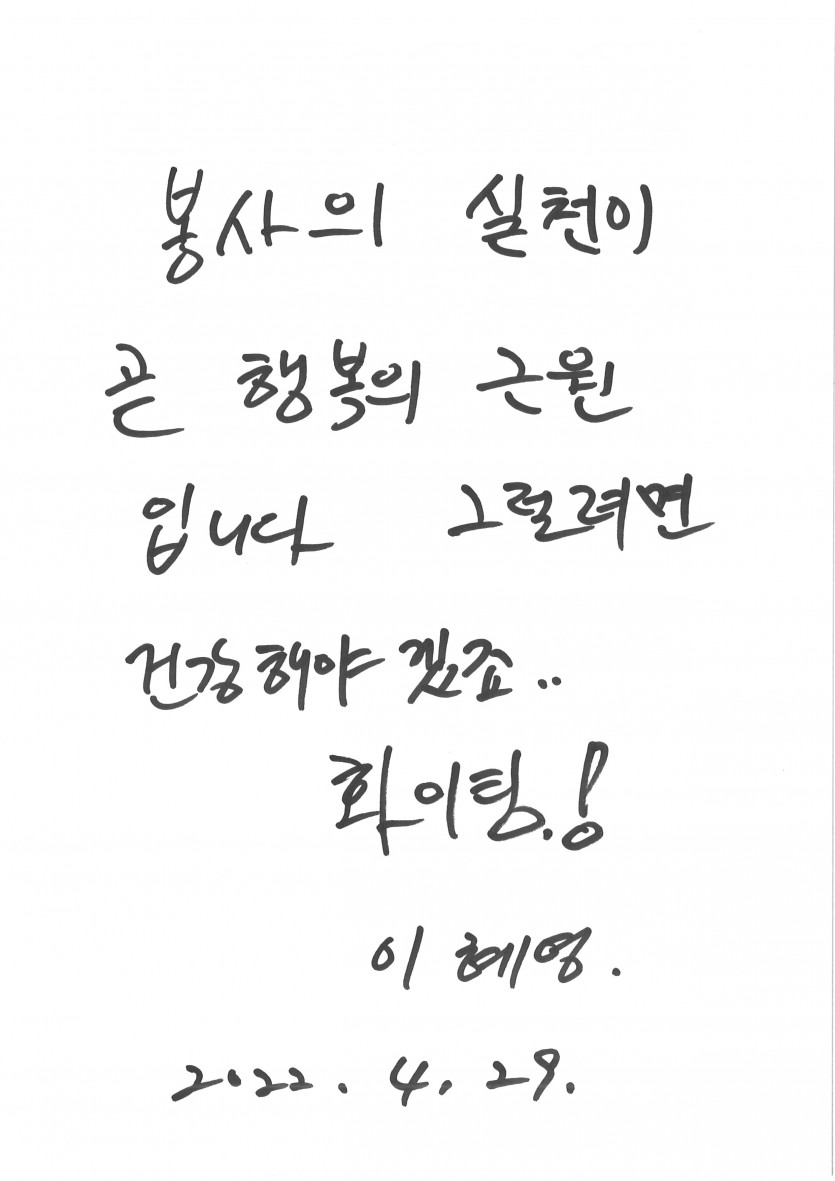 봉사의 실천이
곧 행복의 근원
입니다 그럴려면
건강해야 겠죠..
화이팅.!
이 혜영.
2022. 4. 29.